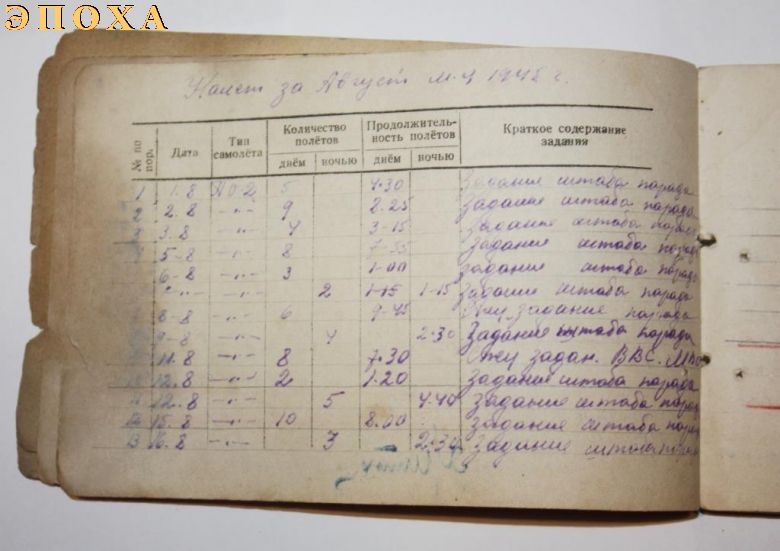 ЭПОХА
Налет за Август м-ц 1945 г.
№ по пор. Дата Тип самолёта Количество полётов днём ночью Продолжительность полётов днём ночью Краткое содержание задания
1 1.8 ПО-2 5 7.30 Задание штаба парада
2 2.8 -"- 9 2.25 Задание штаба парада
3 3.8 -"- 4 3-15 Задание штаба
5-8 -"- 8 7-55 Задание штаба
6-8 -"- 3 1-00 задание штаба парада
-"- -"- 2 1-15 1-15 Задание штаба парада
8-8 -"- 6 9-45 задание парада
9-8 -"- 4 2-30 Задание штаба парада
11.8 -"- 8 7.30 задан. ВВС.
12.8 -"- 2 1.20 задание штаба парада
12.8 -"- 5 4.40 Задание штаба
12 15.8 -"- 10 8.00 задание штаба
13 16.8 -"- 3 2-30 Задание штаба